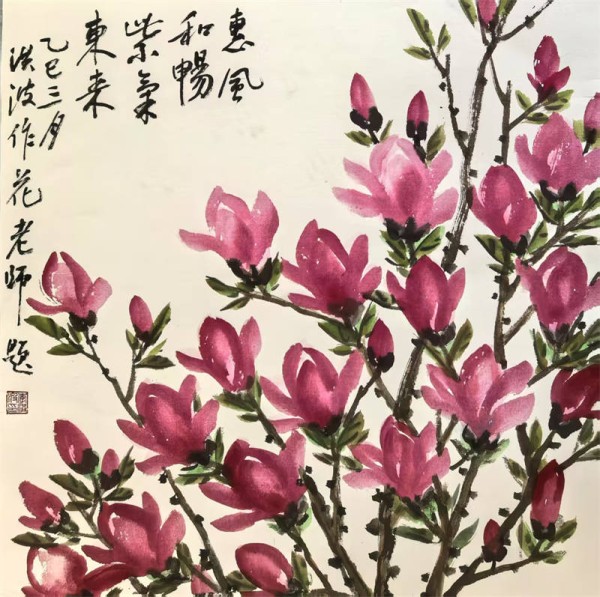 惠風
和暢
紫氣
東来
乙巳三月
洪波作花老師題